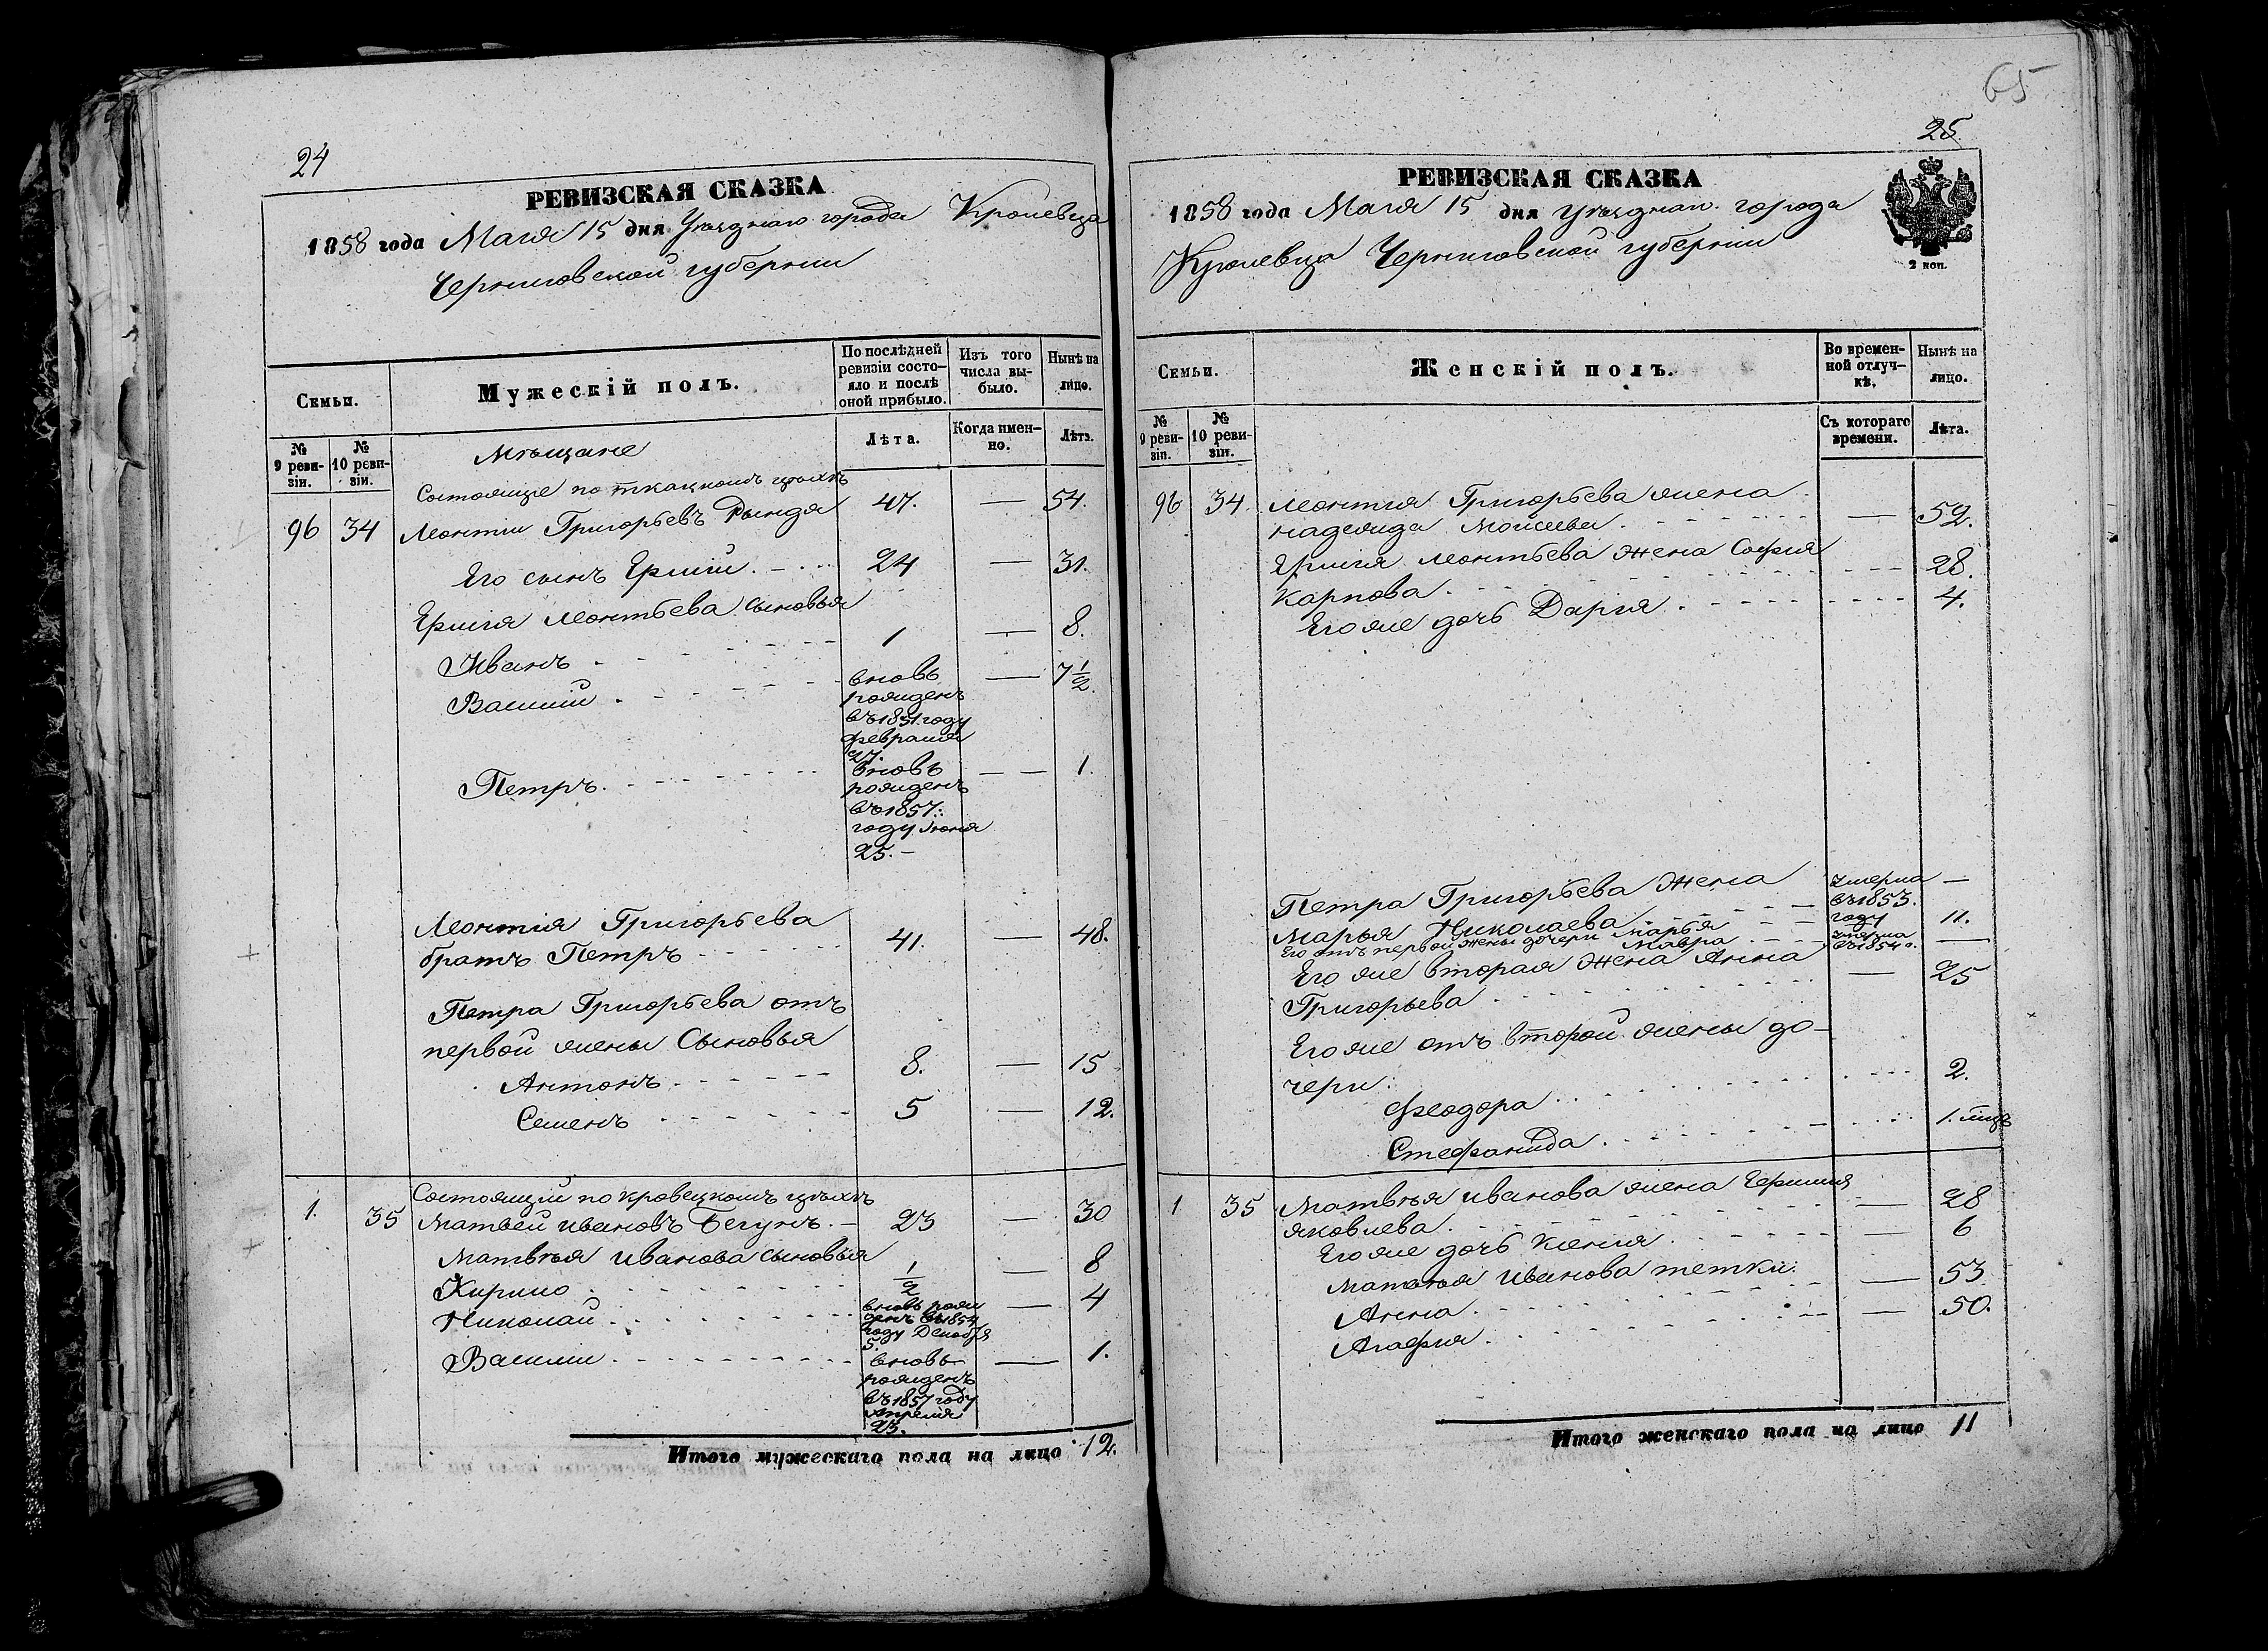 24
РЕВИЗСКАЯ СКАЗКА
1858 года Маія 15 дня Уѣзднаго города Кролевца
Черниговской губерніи
Семьи.
Мужескій полъ.
По послѣдней ревизіи состояло и послѣ оной прибыло.
Изъ того числа выбыло.
Нынѣ на лицо.
№ 9 ревизіи.
№ 10 ревизіи.
Лѣта.
Когда именно.
Лѣта.
Мѣщане
Состоящіе по ткацкомъ цѣхѣ
96 34 Леонтій Григорьевъ Рында 47. — 54.
Его сынъ Ермій. 24 — 31.
Ермія Леонтьева сыновья
Иванъ 1 — 8.
Василій вновь — 7 1/2.
рожденъ
въ 1851 году
февраля
27.
Петръ. вновь — 1.
рожденъ
въ 1857.
году Іюня
25.—
Леонтія Григорьева
братъ Петръ 41. — 48.
Петра Григорьева отъ
первой жены Сыновья
Антонъ 8. — 15
Семенъ 5 — 12.
Состоящій по кравецкомъ цѣхѣ
1. 35 Матвей Ивановъ Бегунъ. 23 — 30
Матвѣя Иванова сыновья
Кирило 1/2 — 8
Николай вновь рож — 4
денъ въ 1854
году Декабря
5.
Василий вновь — 1.
рожденъ
въ 1857 году
Апреля
23.
Итого мужескаго пола на лицо 12.
65
25.
РЕВИЗСКАЯ СКАЗКА
1858 года Маія 15 дня Уѣзднаго города
Кролевца Черниговской губерніи
2 коп.
Семьи.
Женскій полъ.
Во временной отлучкѣ.
Нынѣ на лицо.
№ 9 ревизіи.
№ 10 ревизіи.
Съ котораго времени.
Лѣта.
96 34. Леонтія Григорьева жена
надежда Моисеева. — 52.
Ермія Леонтьева жена Софія
Карпова. 28.
Его же дочь Дарія. 4.
Петра Григорьева жена умерла —
Марья Николаева въ 1853.
году
Его отъ первой жены дочери Марья 11.
Мавра умерла
въ 1854 г. —
Его же вторая жена Анна
Григорьева — 25
Его же отъ второй жены до-
чери:
Феодора 2.
Стефанида 1. мцъ
1 35 Матвѣя Иванова жена
Яковлева. — 28
Его же дочь Ксенія. — 6
Матвѣя Иванова тетки
Анна — 53
Агафия — 50.
Итого женскаго пола на лицо 11